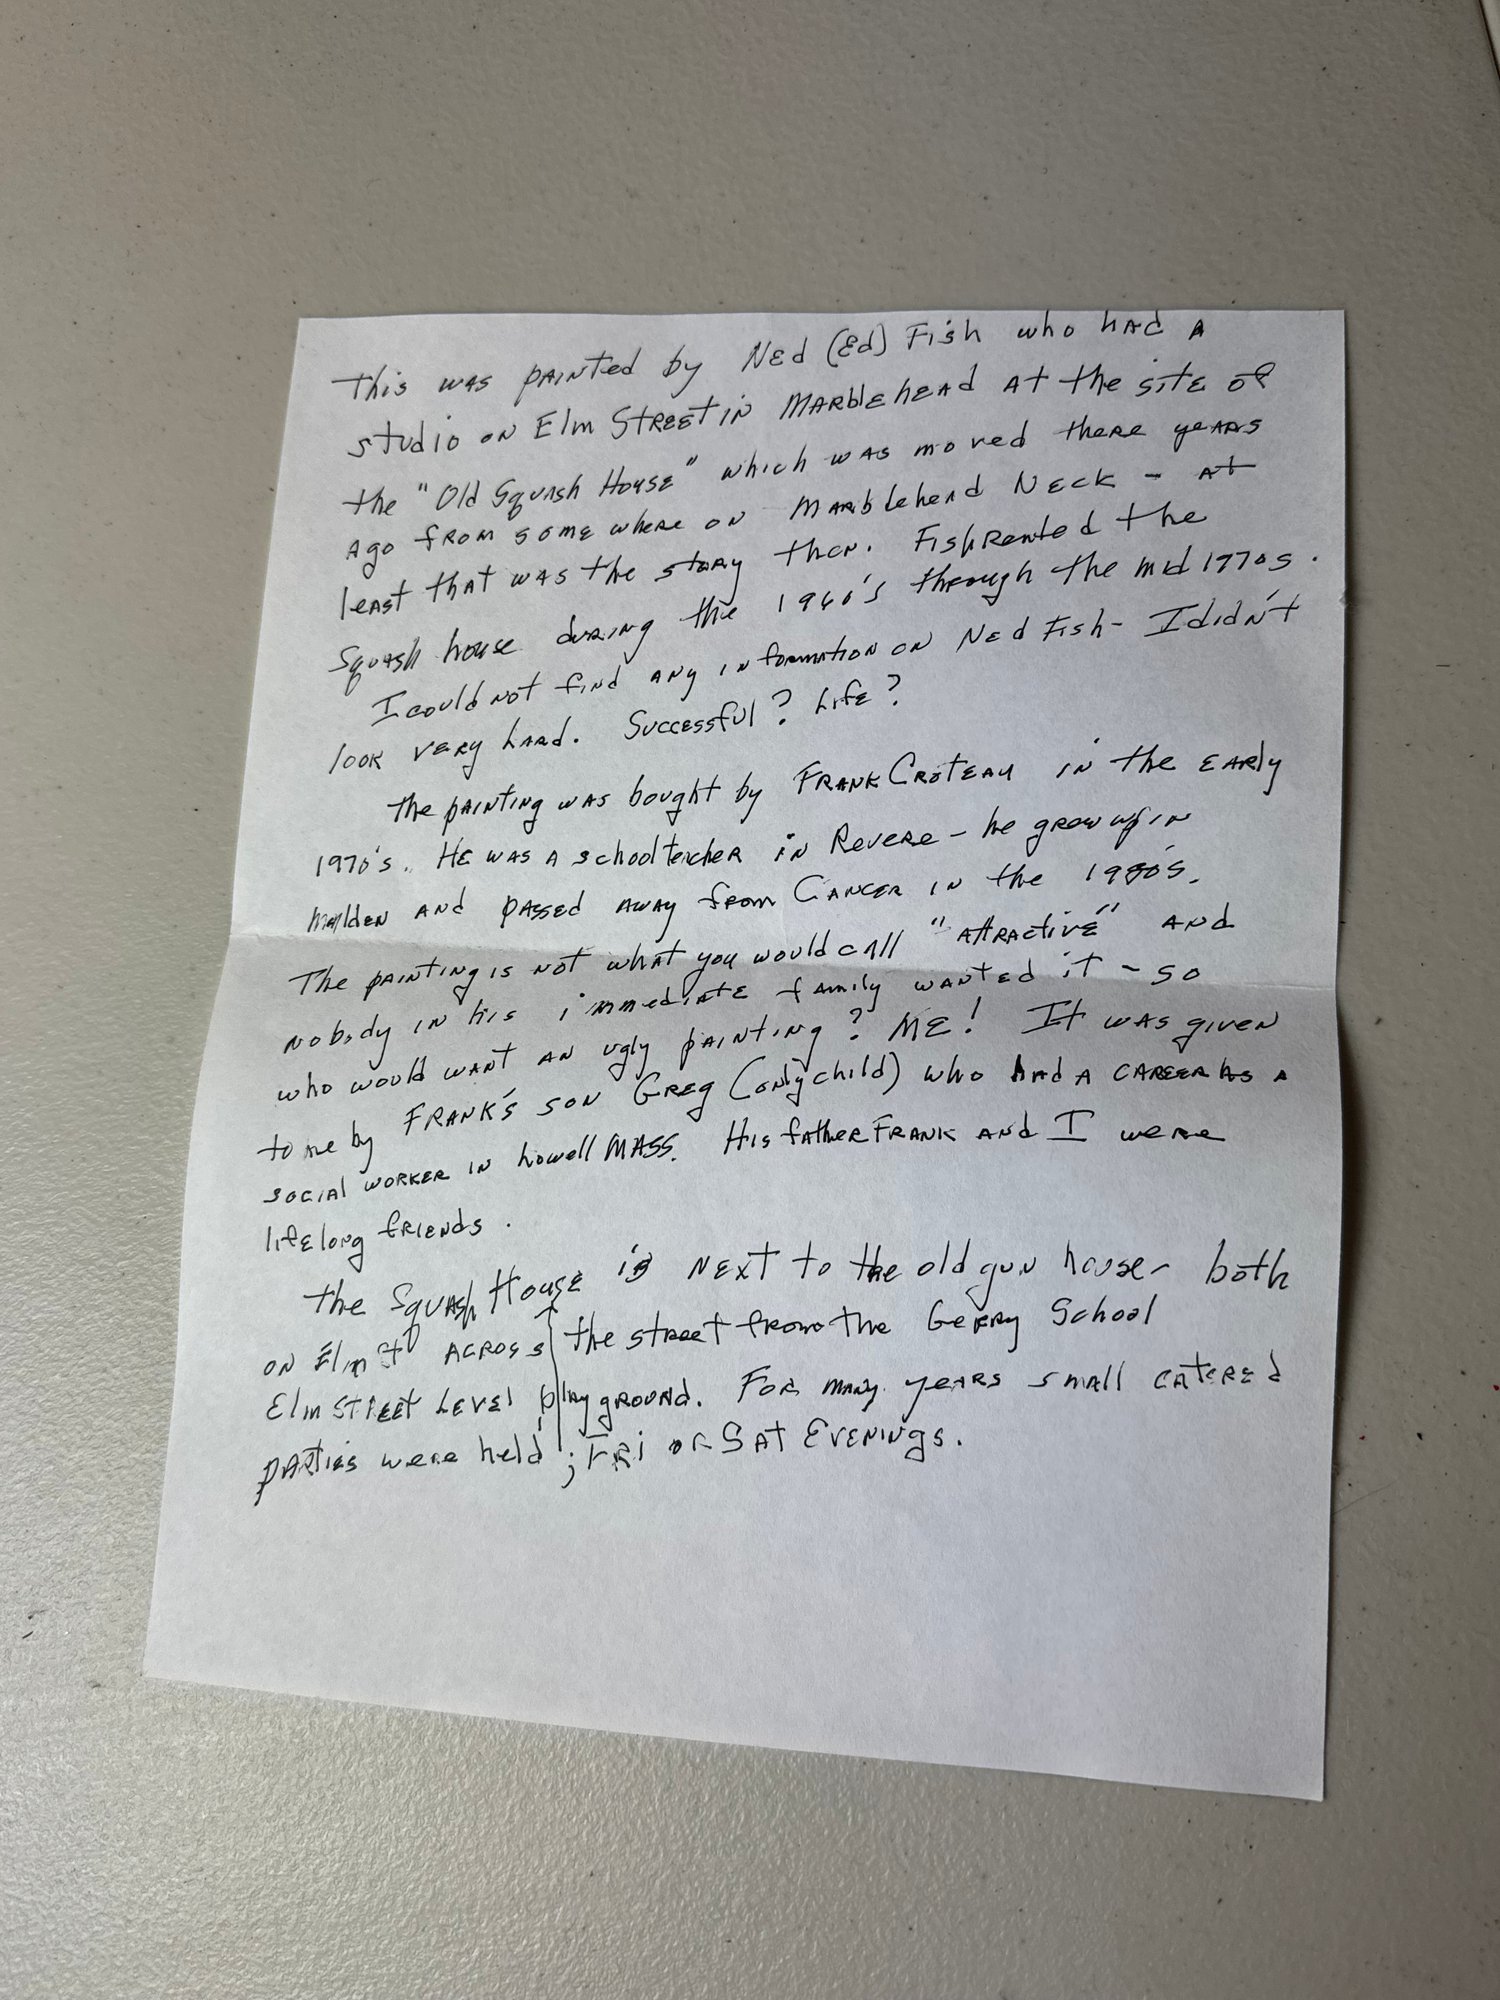 This was painted by Ned (Ed) Fish who had a
studio on Elm Street in Marblehead at the site of
the "Old Squash House" which was moved there years
ago from somewhere on Marblehead Neck - at
least that was the story then. Fish rented the
Squash house during the 1960's through the mid 1970s.
I could not find any information on Ned Fish - I didn't
look very hard. Successful? Life?
The painting was bought by Frank Croteau in the early
1970's. He was a school teacher in Revere - he grew up in
Malden and passed away from Cancer in the 1980's.
The painting is not what you would call "attractive" and
nobody in his immediate family wanted it - so
who would want an ugly painting? ME! It was given
to me by Frank's son Greg (only child) who had a career as a
social worker in Lowell Mass. His father Frank and I were
lifelong friends.
The Squash House is next to the old gun house - both
on Elm St across the street from the Gerry School
Elm Street Level playground. For many years small catered
parties were held ; Fri or Sat Evenings.